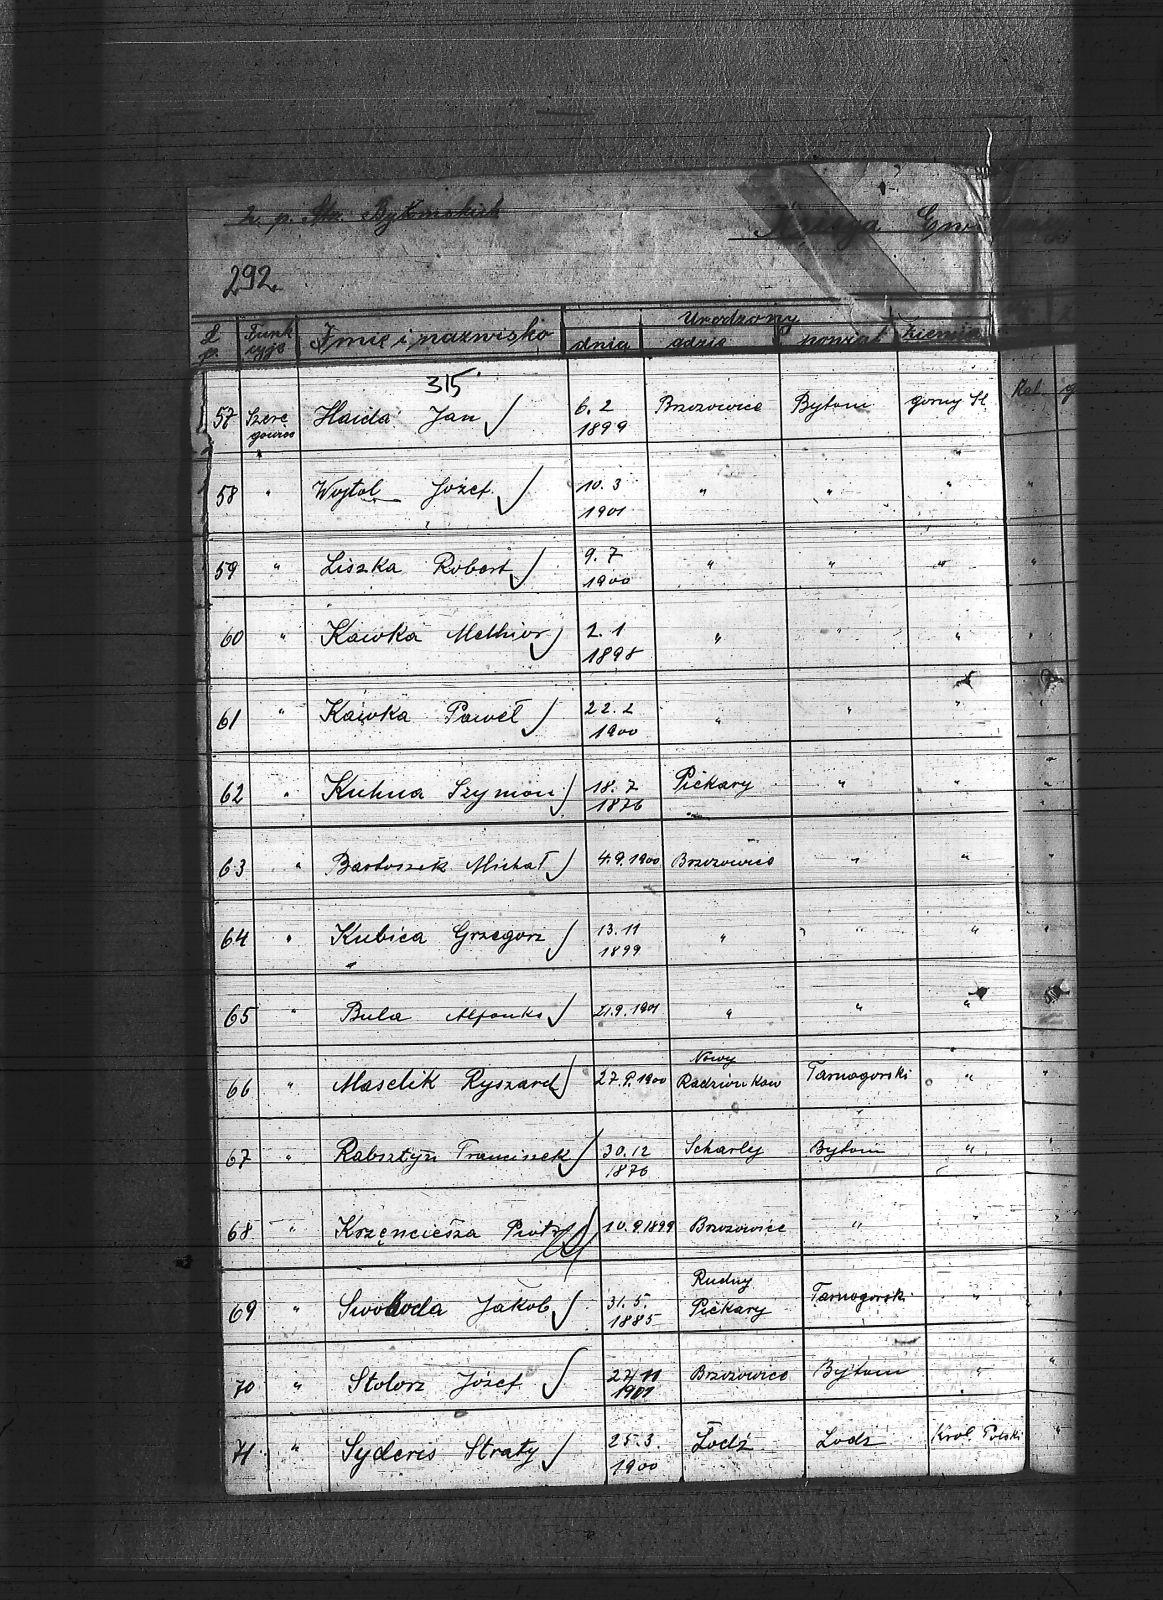 2. p. Strz. Bytomskich
Księga Ewidencyjna
292.
L. p. Funk cyja Imię i nazwisko Urodzony
dnia gdzie powiat ziemia
315
57 Szere gowiec Haida Jan 6. 2 1899 Brzozowice Bytom górny Śl. Kat.
58 " Wojtal Józef 10. 3 1901 " " " "
59 " Liszka Robert 9. 7 1900 " " " "
60 " Kawka Melhior 2. 1 1898 " " " "
61 " Kawka Paweł 22. 2 1900 " " " "
62 " Kuhna Szymon 18. 7 1876 Piekary " " "
63 " Bartoszek Michał 4.9.1900 Brzozowice " " "
64 " Kubica Grzegorz 13. 11 1899 " " " "
65 " Bula Alfonks 21.9.1901 " " " "
66 " Maselik Ryszard 27.9.1900 Nowy Radzionkow Tarnogórski " "
67 " Rabsztyn Franciszek 30.12 1876 Scharley Bytom " "
68 " Krzęnciesza Piotr 10.9.1899 Brzozowice " " "
69 " Swoboda Jakob 31. 5. 1885 Rudny Piekary Tarnogórski " "
70 " Stolorz Józef 27/11 1901 Brzozowice Bytom " "
71. " Syderis Straty 25. 3. 1900 Łodź Lodz Krol. Polski "